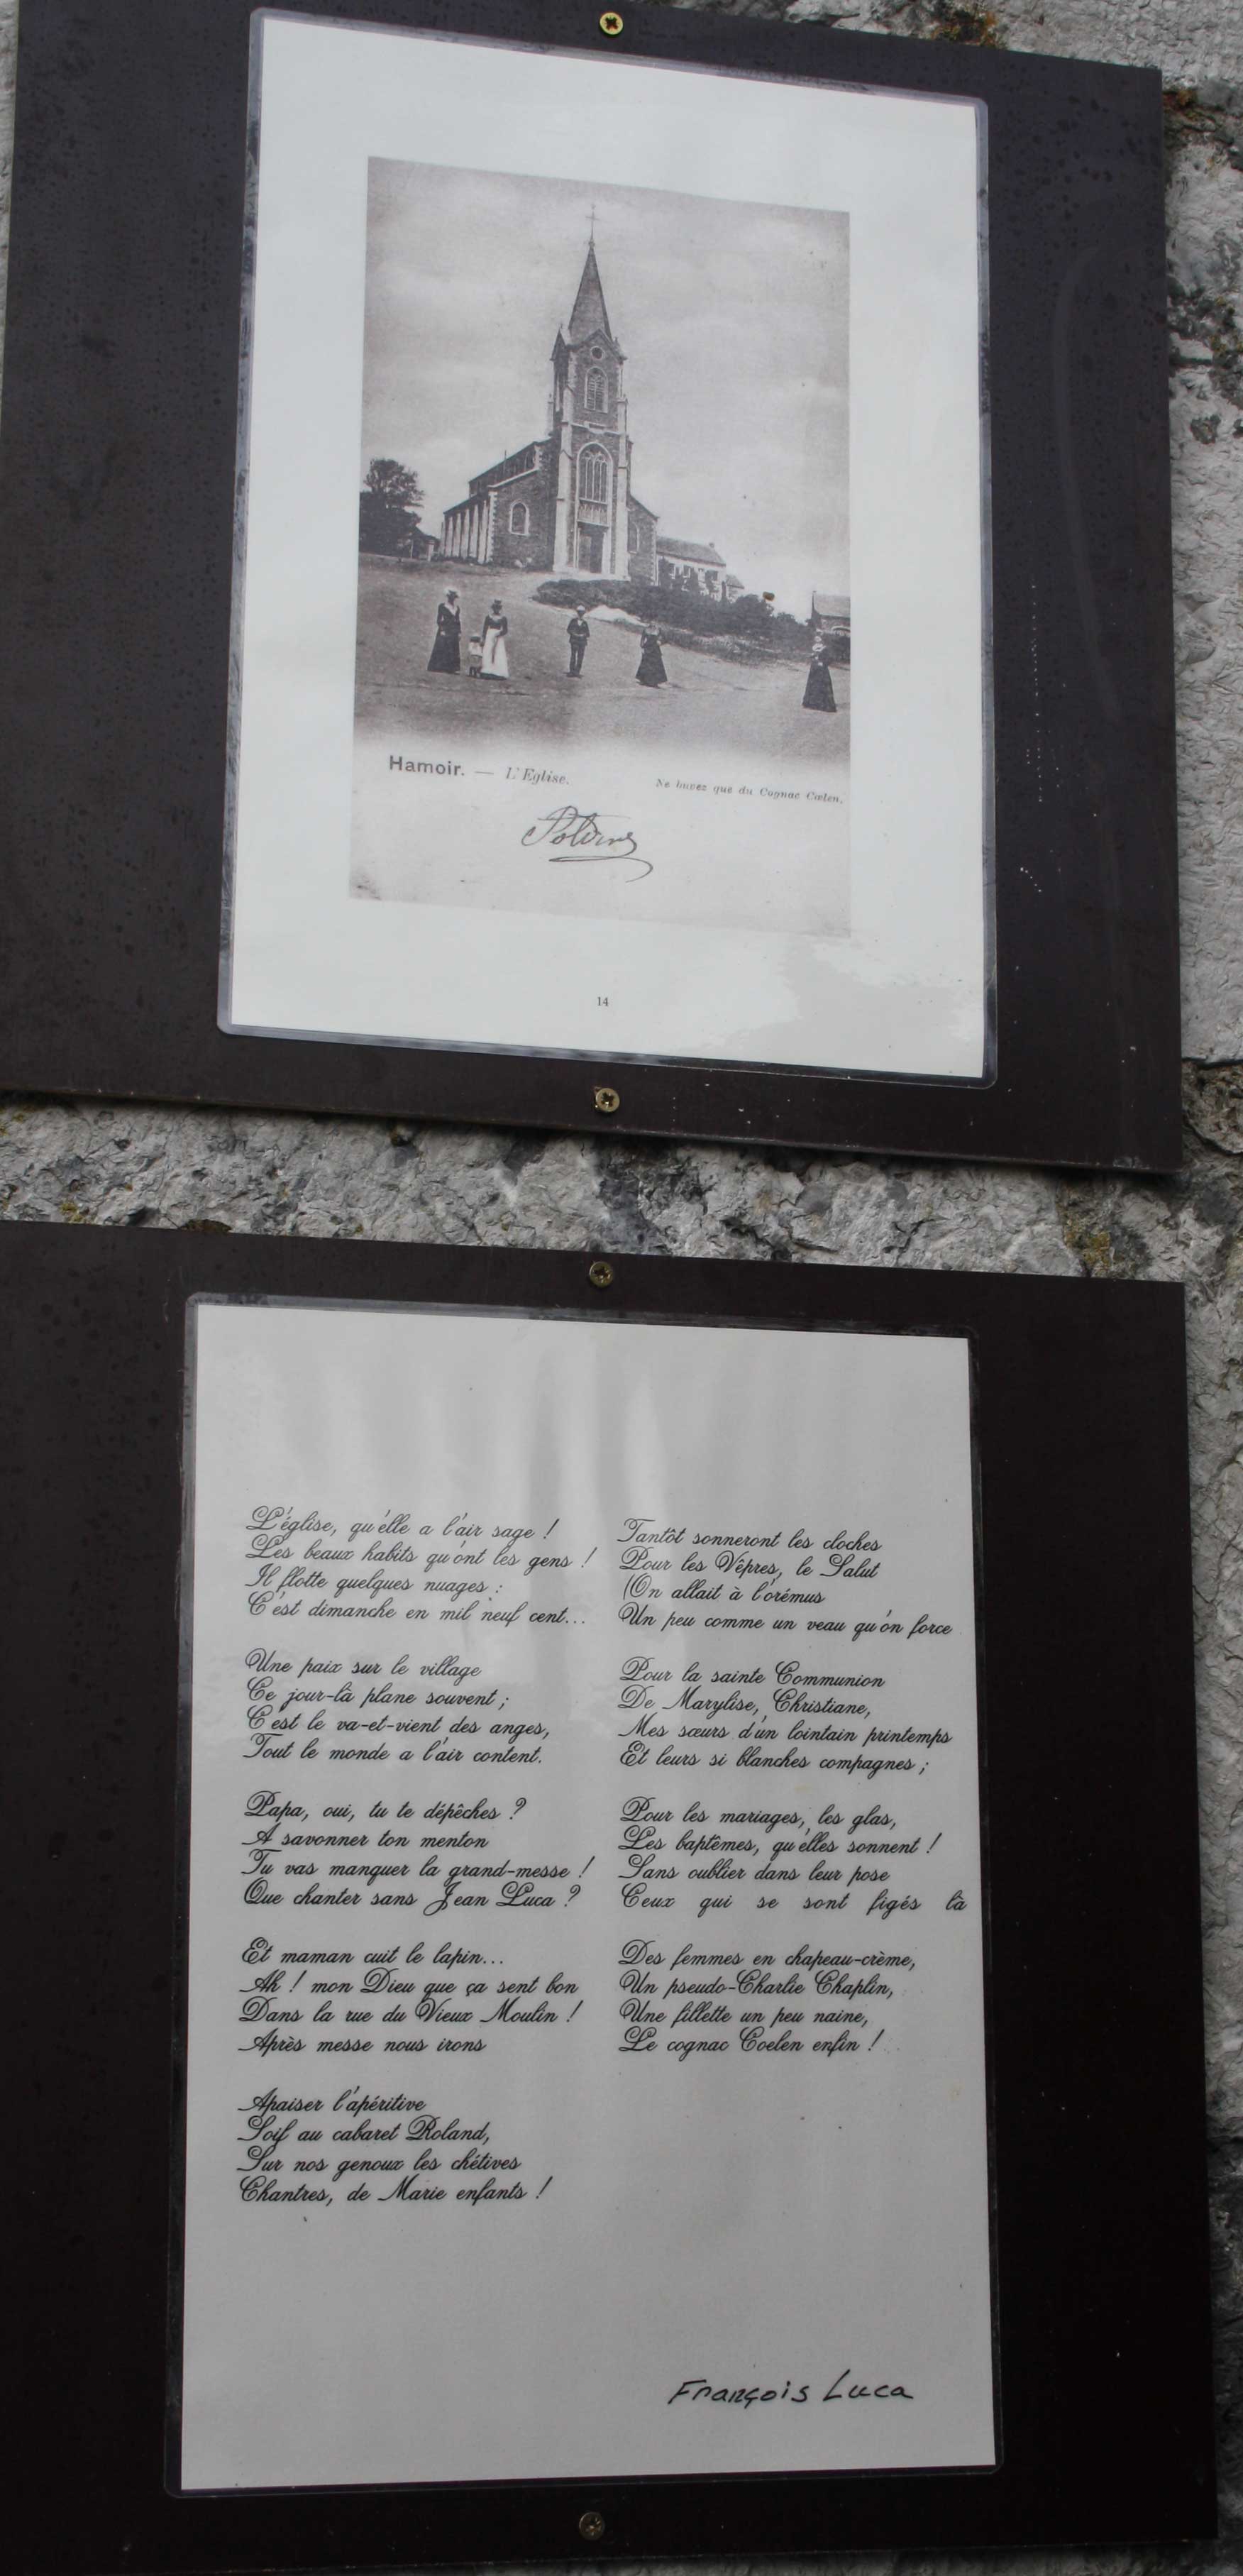 Hamoir. — L'Eglise.
Ne buvez que du Cognac Cœlen.
14
L'église, qu'elle a l'air sage !
Les beaux habits qu'ont les gens !
Il flotte quelques nuages :
C'est dimanche en mil neuf cent...
Une paix sur le village
Ce jour-là plane souvent ;
C'est le va-et-vient des anges,
Tout le monde a l'air content.
Papa, oui, tu te dépêches ?
A savonner ton menton
Tu vas manquer la grand-messe !
Que chanter sans Jean Luca ?
Et maman cuit le lapin...
Ah ! mon Dieu que ça sent bon
Dans la rue du Vieux Moulin !
Après messe nous irons
Apaiser l'apéritive
Soif au cabaret Roland,
Sur nos genoux les chétives
Chantres, de Marie enfants !
Tantôt sonneront les cloches
Pour les Vêpres, le Salut
(On allait à l'orémus
Un peu comme un veau qu'on force
Pour la sainte Communion
De Marylise, Christiane,
Mes sœurs d'un lointain printemps
Et leurs si blanches compagnes ;
Pour les mariages, les glas,
Les baptêmes, qu'elles sonnent !
Sans oublier dans leur pose
Ceux qui se sont figés là
Des femmes en chapeau-crème,
Un pseudo-Charlie Chaplin,
Une fillette un peu naine,
Le cognac Coelen enfin !
François Luca